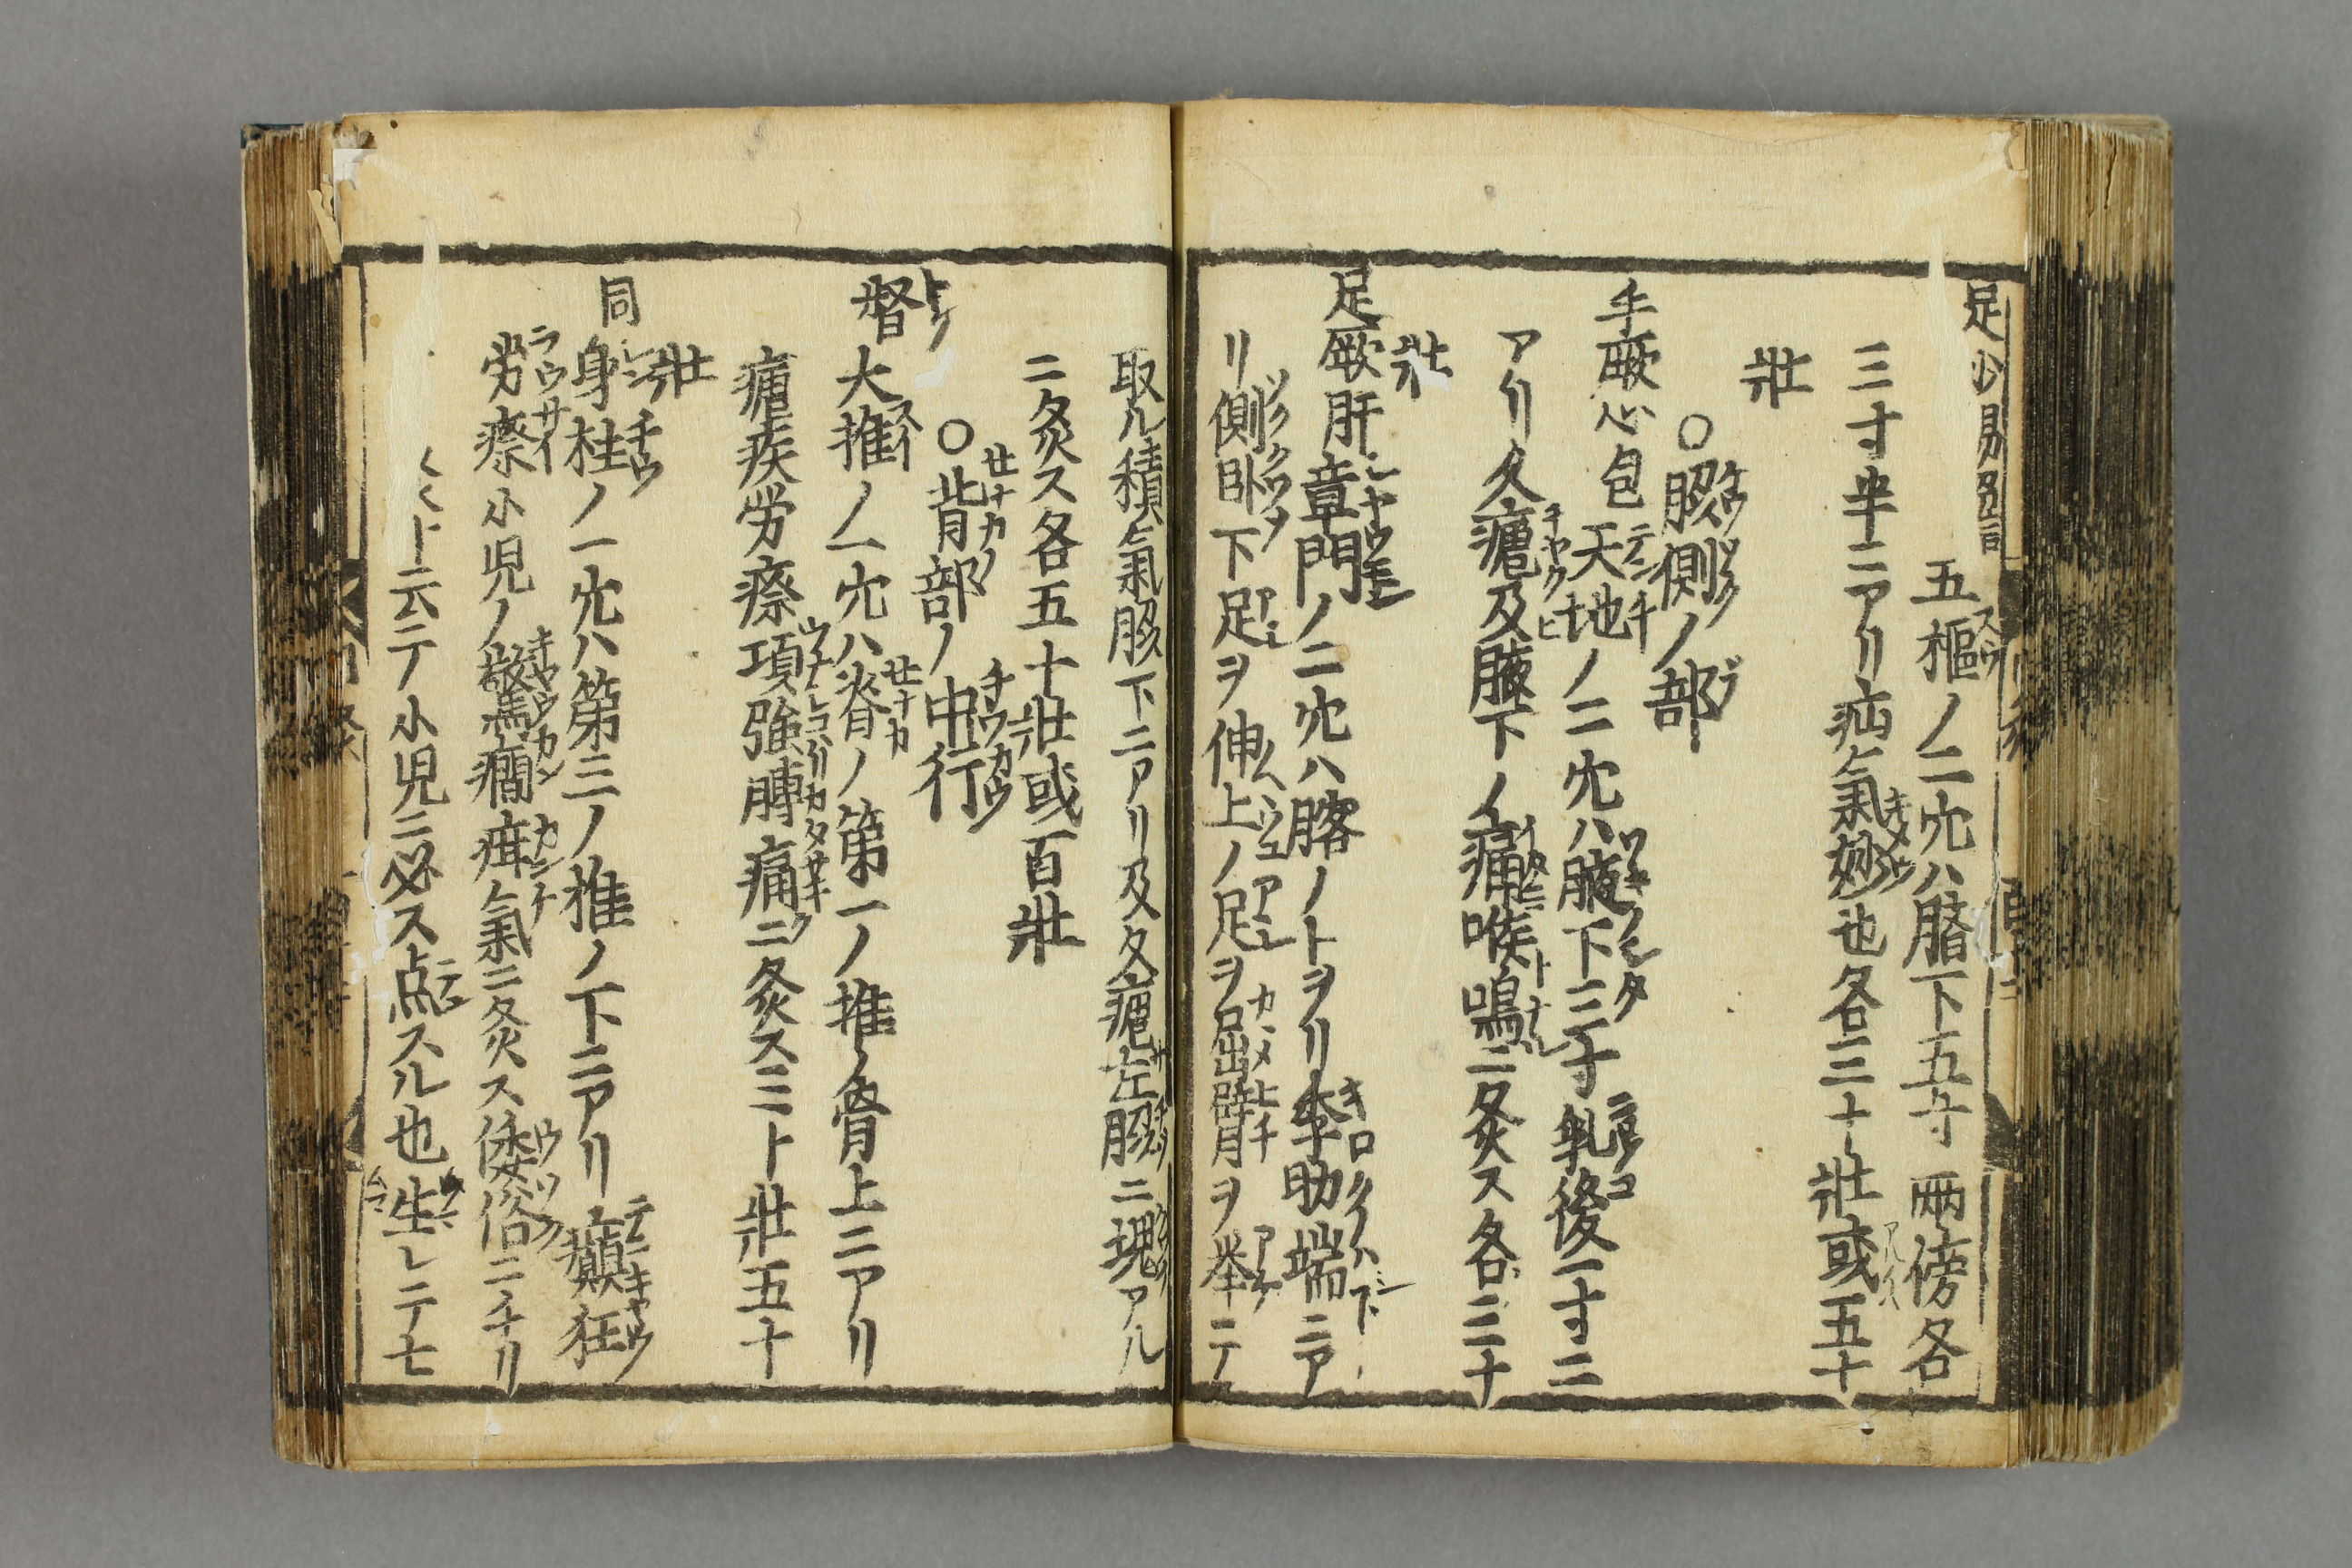 足少陽胆 五樞ノ二穴ハ臍下五寸両傍各
三寸半ニアリ疝氣妙也各三十壮或五十
壮
○脇側ノ部
手厥心包 天地ノ二穴ハ腋下三寸乳後一寸ニ
アリ久瘧及腋下ノ痛喉鳴ニ灸ス各三十
壮
足厥肝 章門ノ二穴ハ臍ノトヲリ季肋端ニア
リ側卧下足ヲ伸上ノ足ヲ屈臂ヲ挙ニテ
取ル積氣脇下ニアリ及久瘧左脇ニ塊アル
ニ灸ス各五十壮或百壮
○背部ノ中行
督 大推ノ一穴ハ脊ノ第一ノ推ノ骨上ニアリ
瘧疾労瘵項強膊痛ニ灸ス三十壮五十
壮
同 身柱ノ一穴ハ第三ノ推ノ下ニアリ癲狂
労瘵小児ノ驚癇疳氣ニ灸ス倭俗ニチリ
〱ト云テ小児ニ必ス点スル也生レテ七